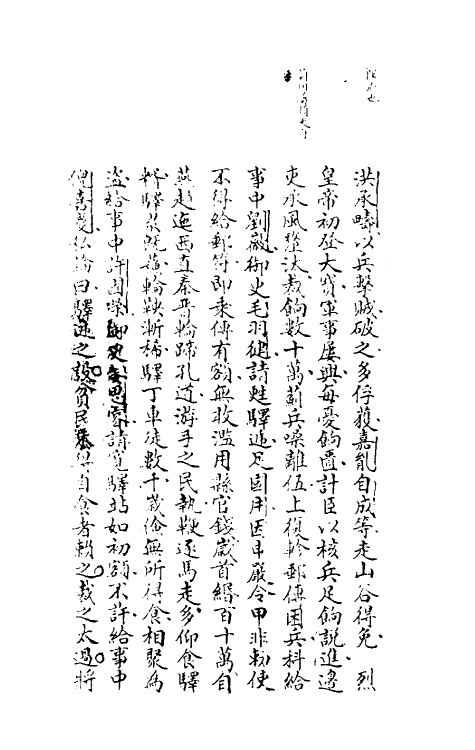 洪承疇以兵擊賊破之多俘獲嘉胤自成等走山谷得免　烈
皇帝初登大寶軍事屢興每憂餉匱計臣以核兵足餉說進邊
吏承風釐汰裁餉數十萬薊兵噪離伍上復軫郵傳困兵科給
事中劉懋御史毛羽健請甦驛遞足國用因申嚴令甲非勅使
不得給郵符即乘傳有額無敢濫用縣官錢歲首緡百十萬自
燕趙迤西直秦晉輪蹄孔道游手之民執鞭逐馬走多仰食驛
糈驛裁旣舊輪鞅漸稀驛丁車徒數千歲儉無所得食相聚為
盜給事中許國榮御史姜思睿請寬驛站如初額不許給事中
倪嘉慶私論曰驛遞之設貧民得自食者賴之裁之太過將